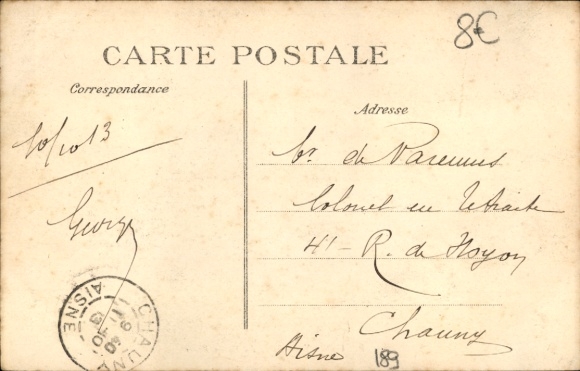 8€
CARTE POSTALE
Correspondance
Adresse
10/10 13
Georges
de Varennes
Colonel en retraite
41 - R. de Noyon
Chauny
Aisne
189
CHAUNY
AISNE